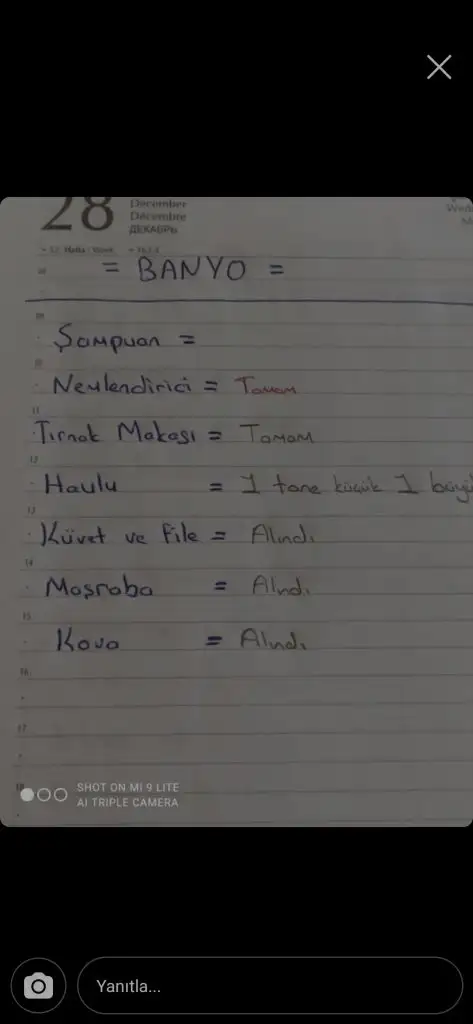 28
December
Décembre
ДЕКАБРЬ
= BANYO =
09
Şampuan =
10
Nemlendirici = Tamam
11
Tırnak Makası = Tamam
12
Havlu = 1 tane küçük 1 büyü
13
Küvet ve File = Alındı
14
Maşraba = Alındı
15
Kova = Alındı
16
17
18
SHOT ON MI 9 LITE
AI TRIPLE CAMERA
Yanıtla...